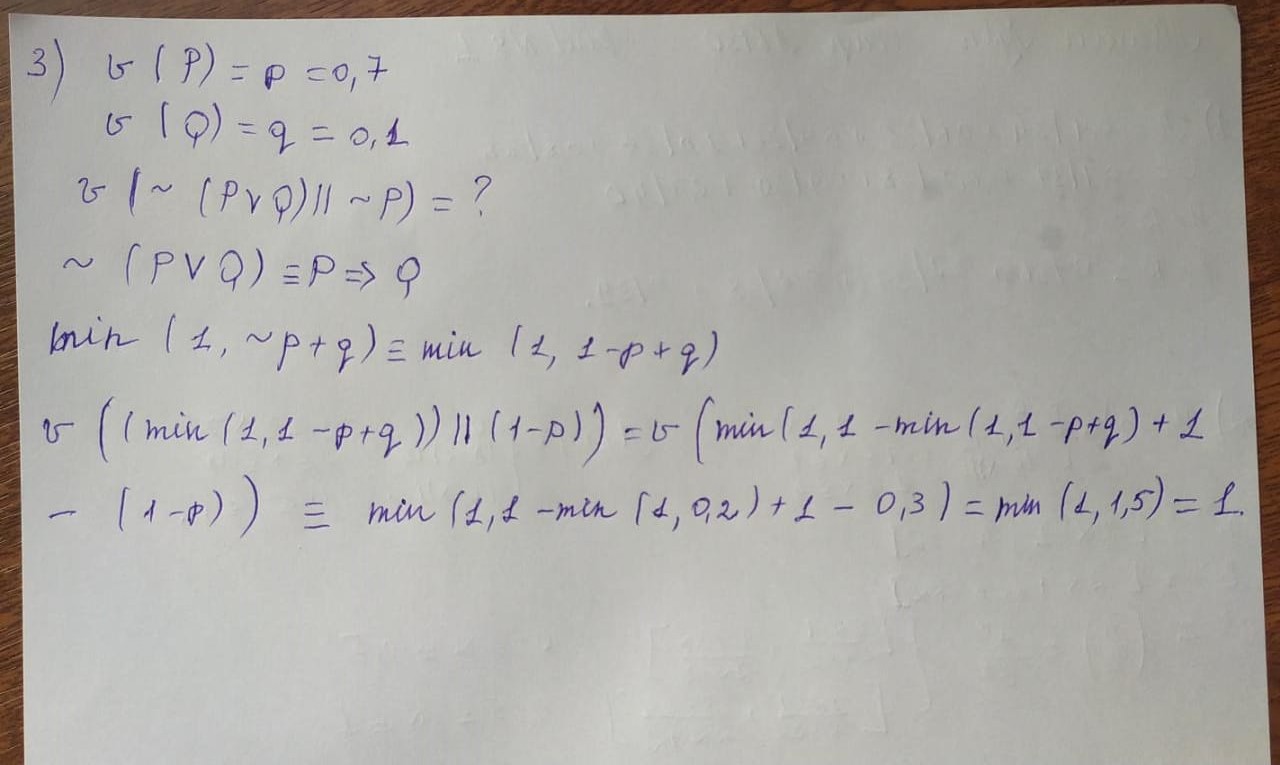 3) v (P) = p = 0,7
v (Q) = q = 0,1
v (~ (P∨Q) || ~P) = ?
~ (P∨Q) ≡ P ⇒ Q
min (1, ~p+q) ≡ min (1, 1-p+q)
v ((min (1,1-p+q)) || (1-p)) = v (min (1,1-min (1,1-p+q) + 1
- (1-p)) ≡ min (1,1-min (1,0,2) + 1 - 0,3) = min (1,1,5) = 1.